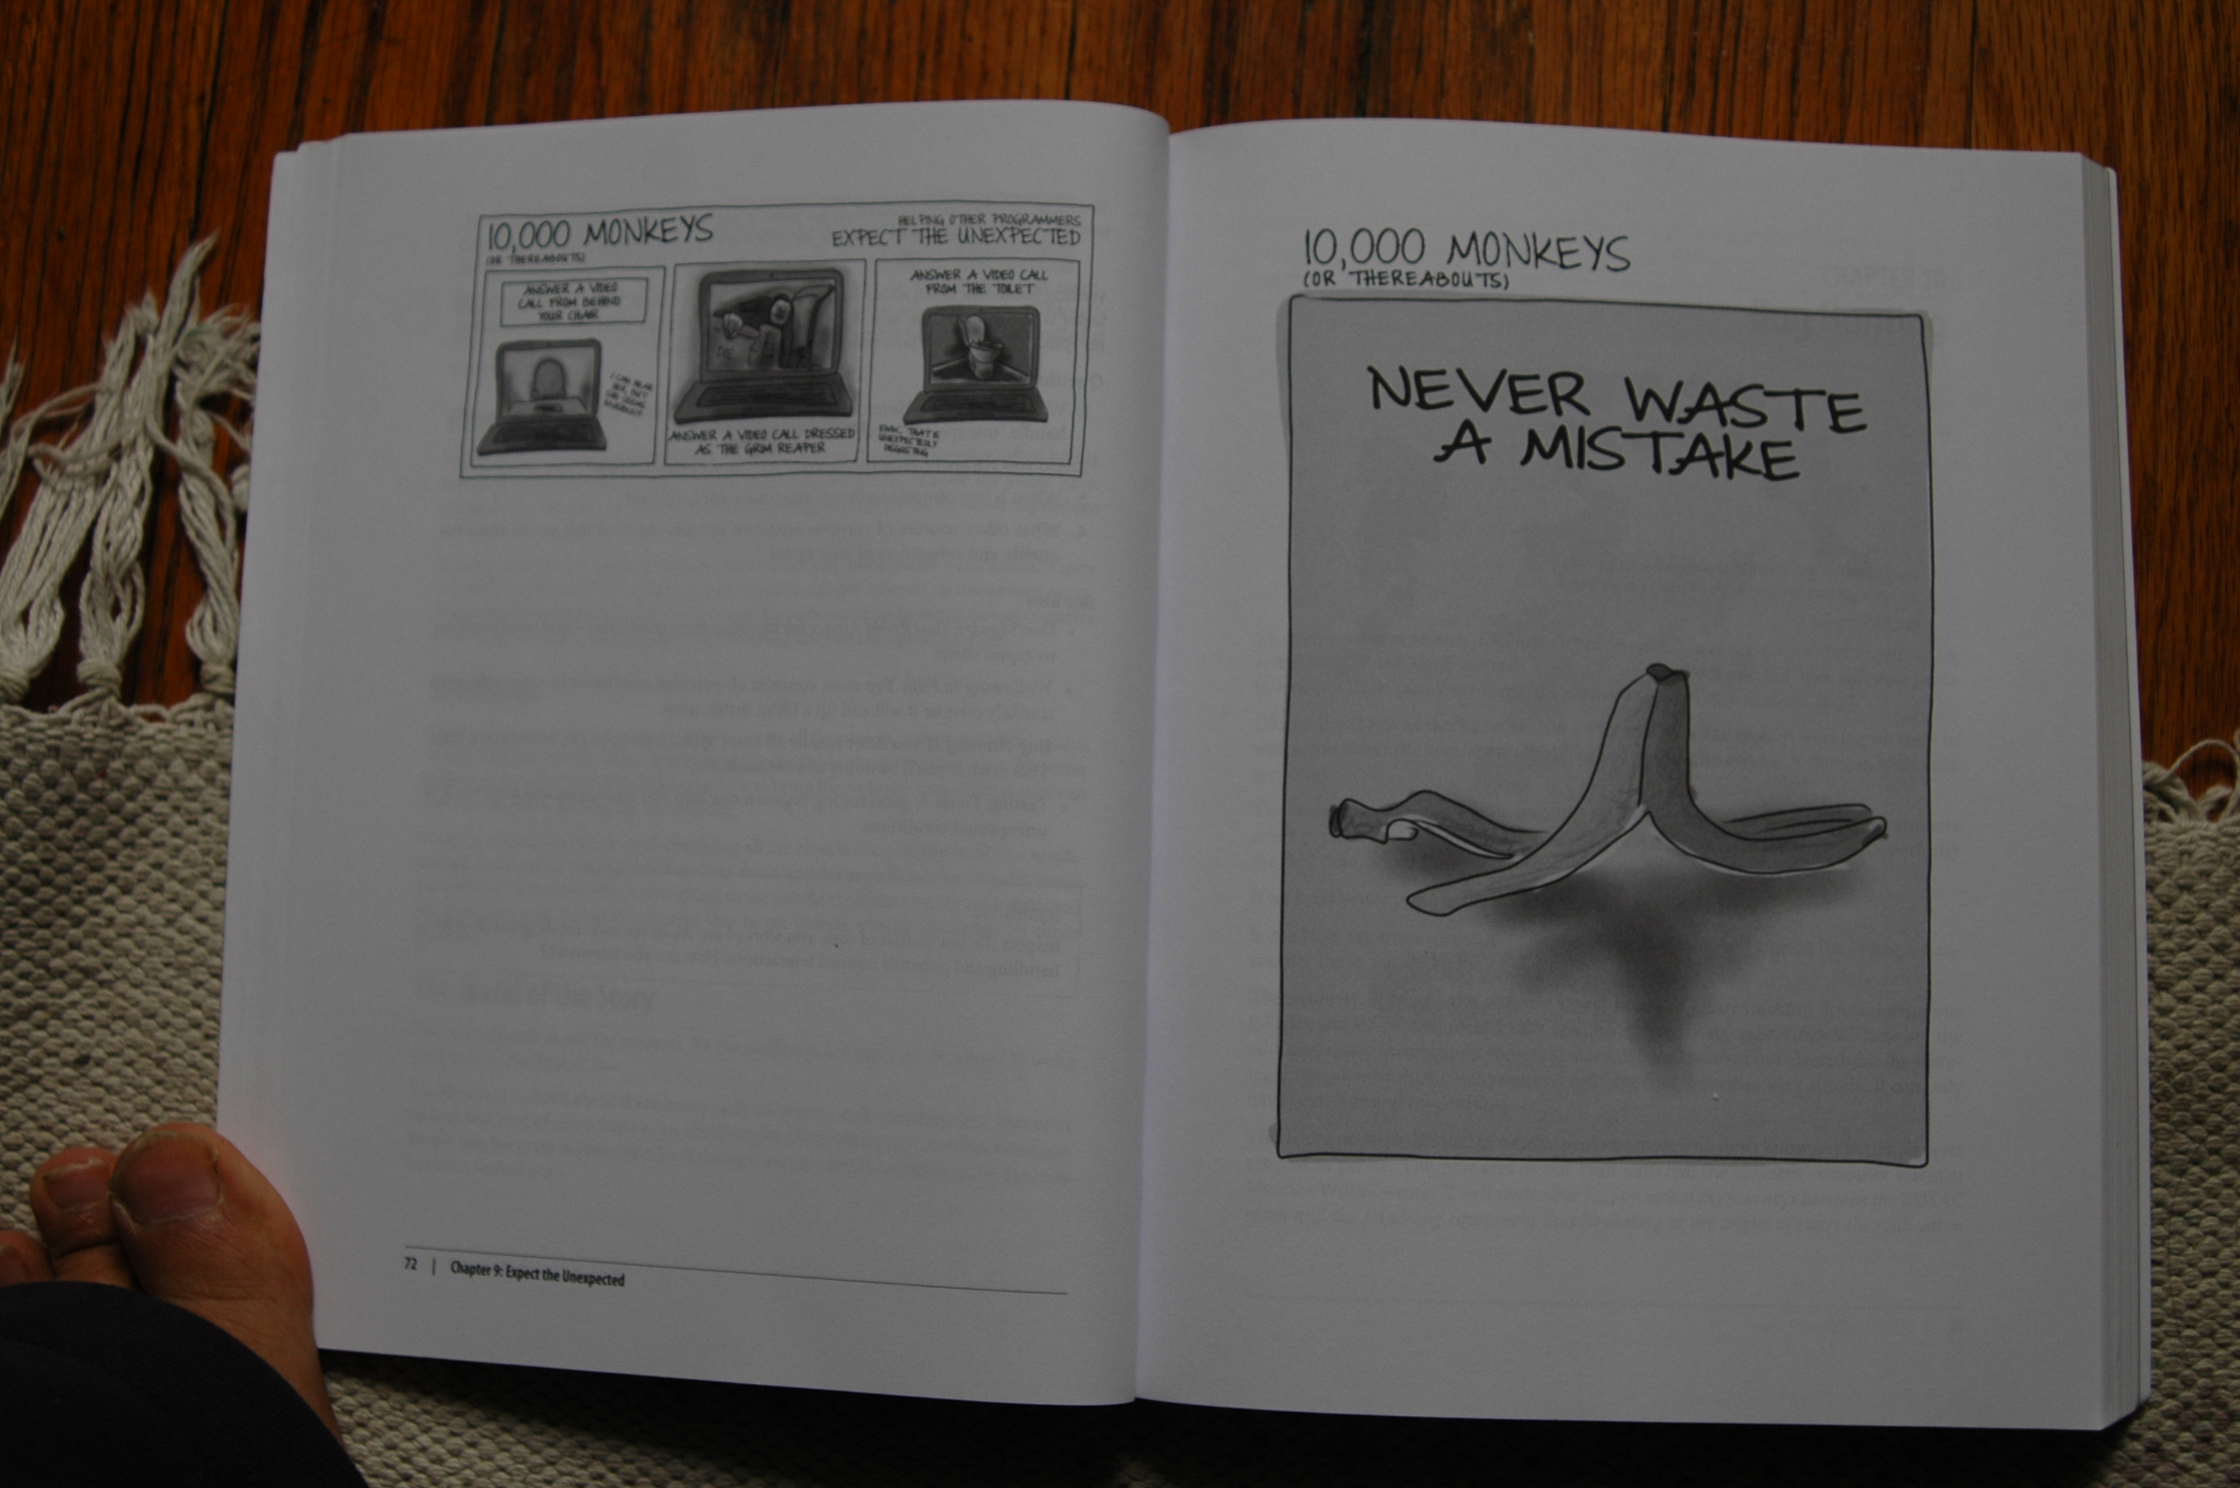 10,000 MONKEYS
(OR THEREABOUTS)
HELPING OTHER PROGRAMMERS
EXPECT THE UNEXPECTED
ANSWER A VIDEO
CALL FROM BEHIND
YOUR CHAIR
I CAN HEAR
HIM, BUT
ANSWER A VIDEO CALL DRESSED
AS THE GRIM REAPER
ANSWER A VIDEO CALL
FROM THE TOILET
EWW... THAT'S
UNEXPECTEDLY
DISGUSTING
72 | Chapter 9: Expect the Unexpected
10,000 MONKEYS
(OR THEREABOUTS)
NEVER WASTE
A MISTAKE